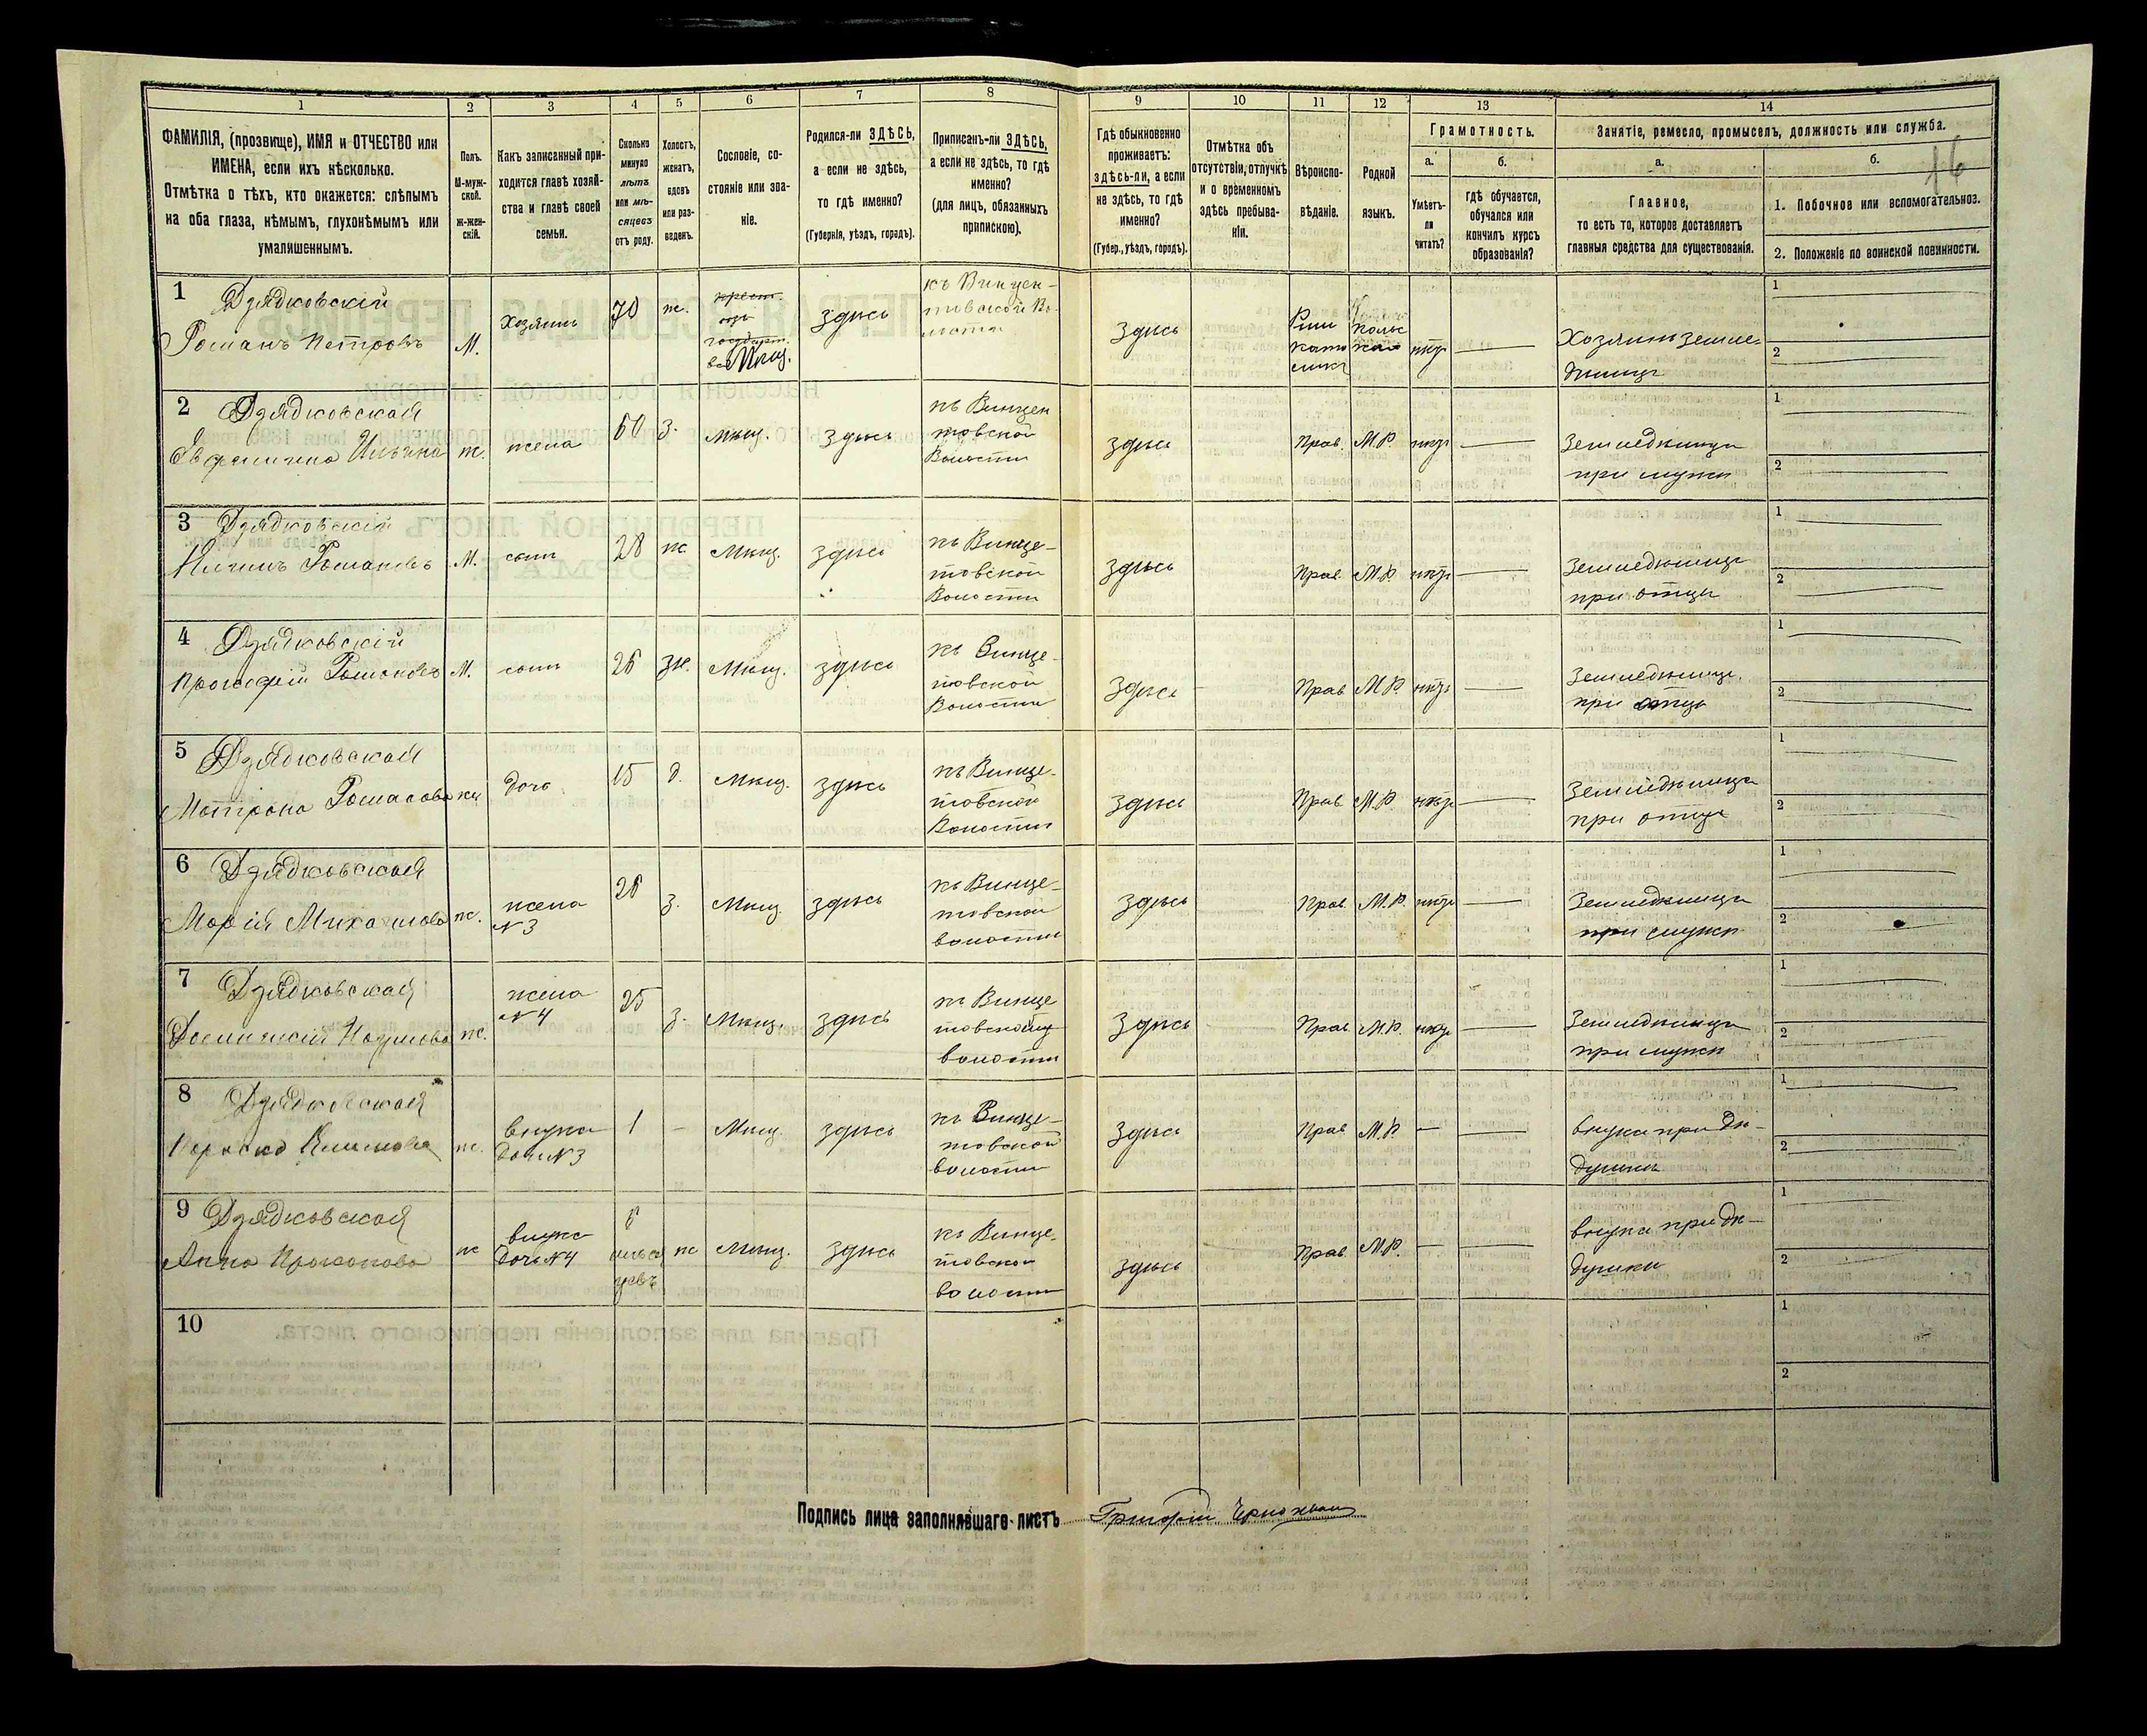 1 2 3 4 5 6 7 8 9 10 11 12 13 14
ФАМИЛІЯ, (прозвище), ИМЯ и ОТЧЕСТВО или
ИМЕНА, если ихъ нѣсколько.
Отмѣтка о тѣхъ, кто окажется: слѣпымъ
на оба глаза, нѣмымъ, глухонѣмымъ или
умалишеннымъ.
Полъ.
М-муж-
ской.
Ж-жен-
скій.
Какъ записанный при-
ходится главѣ хозяй-
ства и главѣ своей
семьи.
Сколько
минуло
лѣтъ
или мѣ-
сяцевъ
отъ роду.
Холостъ,
женатъ,
вдовъ
или раз-
веденъ.
Сословіе, со-
стояніе или зва-
ніе.
Родился-ли ЗДѢСЬ,
а если не здѣсь,
то гдѣ именно?
(Губернія, уѣздъ, городъ).
Приписанъ-ли ЗДѢСЬ,
а если не здѣсь, то гдѣ
именно?
(для лицъ, обязанныхъ
припискою).
Гдѣ обыкновенно
проживаетъ:
здѣсь-ли, а если
не здѣсь, то гдѣ
именно?
(Губер., уѣздъ, городъ).
Отмѣтка объ
отсутствіи, отлучкѣ
и о временномъ
здѣсь пребыва-
ніи.
Вѣроиспо-
вѣданіе.
Родной
языкъ.
Грамотность.
а.
Умѣетъ-
ли
читать?
б.
гдѣ обучается,
обучался или
кончилъ курсъ
образованія?
Занятіе, ремесло, промыселъ, должность или служба.
а.
Главное,
то есть то, которое доставляетъ
главныя средства для существованія.
б.
16
1. Побочное или вспомогательное.
2. Положеніе по воинской повинности.
1 Дзядковскій
Романъ Петровъ
М.
Хозяинъ
70
ж.
крест.
Мѣщ.
здѣсь
къ Винцен-
товской Во-
лости
здѣсь
Рим
като
ликъ
польс
кая
нѣтъ
Хозяинъ земле-
дѣлецъ
1
2
2 Дзядковская
Ильина
ж.
жена
60
з.
мѣщ.
здѣсь
къ Винцен
товской
Волости
здѣсь
Прав.
М.Р.
нѣтъ
Земледѣлица
при мужѣ
1
2
3 Дзядковскій
Романовъ
М.
сынъ
28
ж
мѣщ.
здѣсь
къ Винце-
товской
Волости
здѣсь
Прав.
М.Р.
нѣтъ
Земледѣлецъ
при отцѣ
1
2
4 Дзядковскій
Романовъ
М.
сынъ
26
мѣщ.
здѣсь
къ Винце-
товской
Волости
здѣсь
Прав
М.Р.
нѣтъ
Земледѣлецъ.
при отцѣ
1
2
5 Дзядковская
Матрона Романова
дочь
15
д.
мѣщ.
здѣсь
къ Винце-
товской
Волости
здѣсь
Прав.
М.Р.
нѣтъ
Земледѣлица
при отцѣ
1
2
6 Дзядковская
Марія Михайлова
ж.
жена
№3
26
з.
мѣщ.
здѣсь
къ Винце-
товской
волости
здѣсь
Прав.
М.Р.
нѣтъ
Земледѣлица
при мужѣ
1
2
7 Дзядковская
ж.
жена
№4
25
з.
мѣщ.
здѣсь
къ Винце
товской
волости
здѣсь
Прав.
М.Р.
нѣтъ
Земледѣлица
при мужѣ
1
2
8 Дзядковская
ж.
внука
дочь №3
1
-
мѣщ.
здѣсь
къ Винце-
товской
волости
здѣсь
Прав
М.Р.
внука при дѣ-
душкѣ
1
2
9 Дзядковская
Анна
ж
внука
дочь №4
мѣся
цевъ
мѣщ.
здѣсь
къ Винце-
товской
волости
здѣсь
Прав.
М.Р.
внука при дѣ-
душкѣ
1
2
10
1
2
Подпись лица заполнявшаго листъ
Григорій